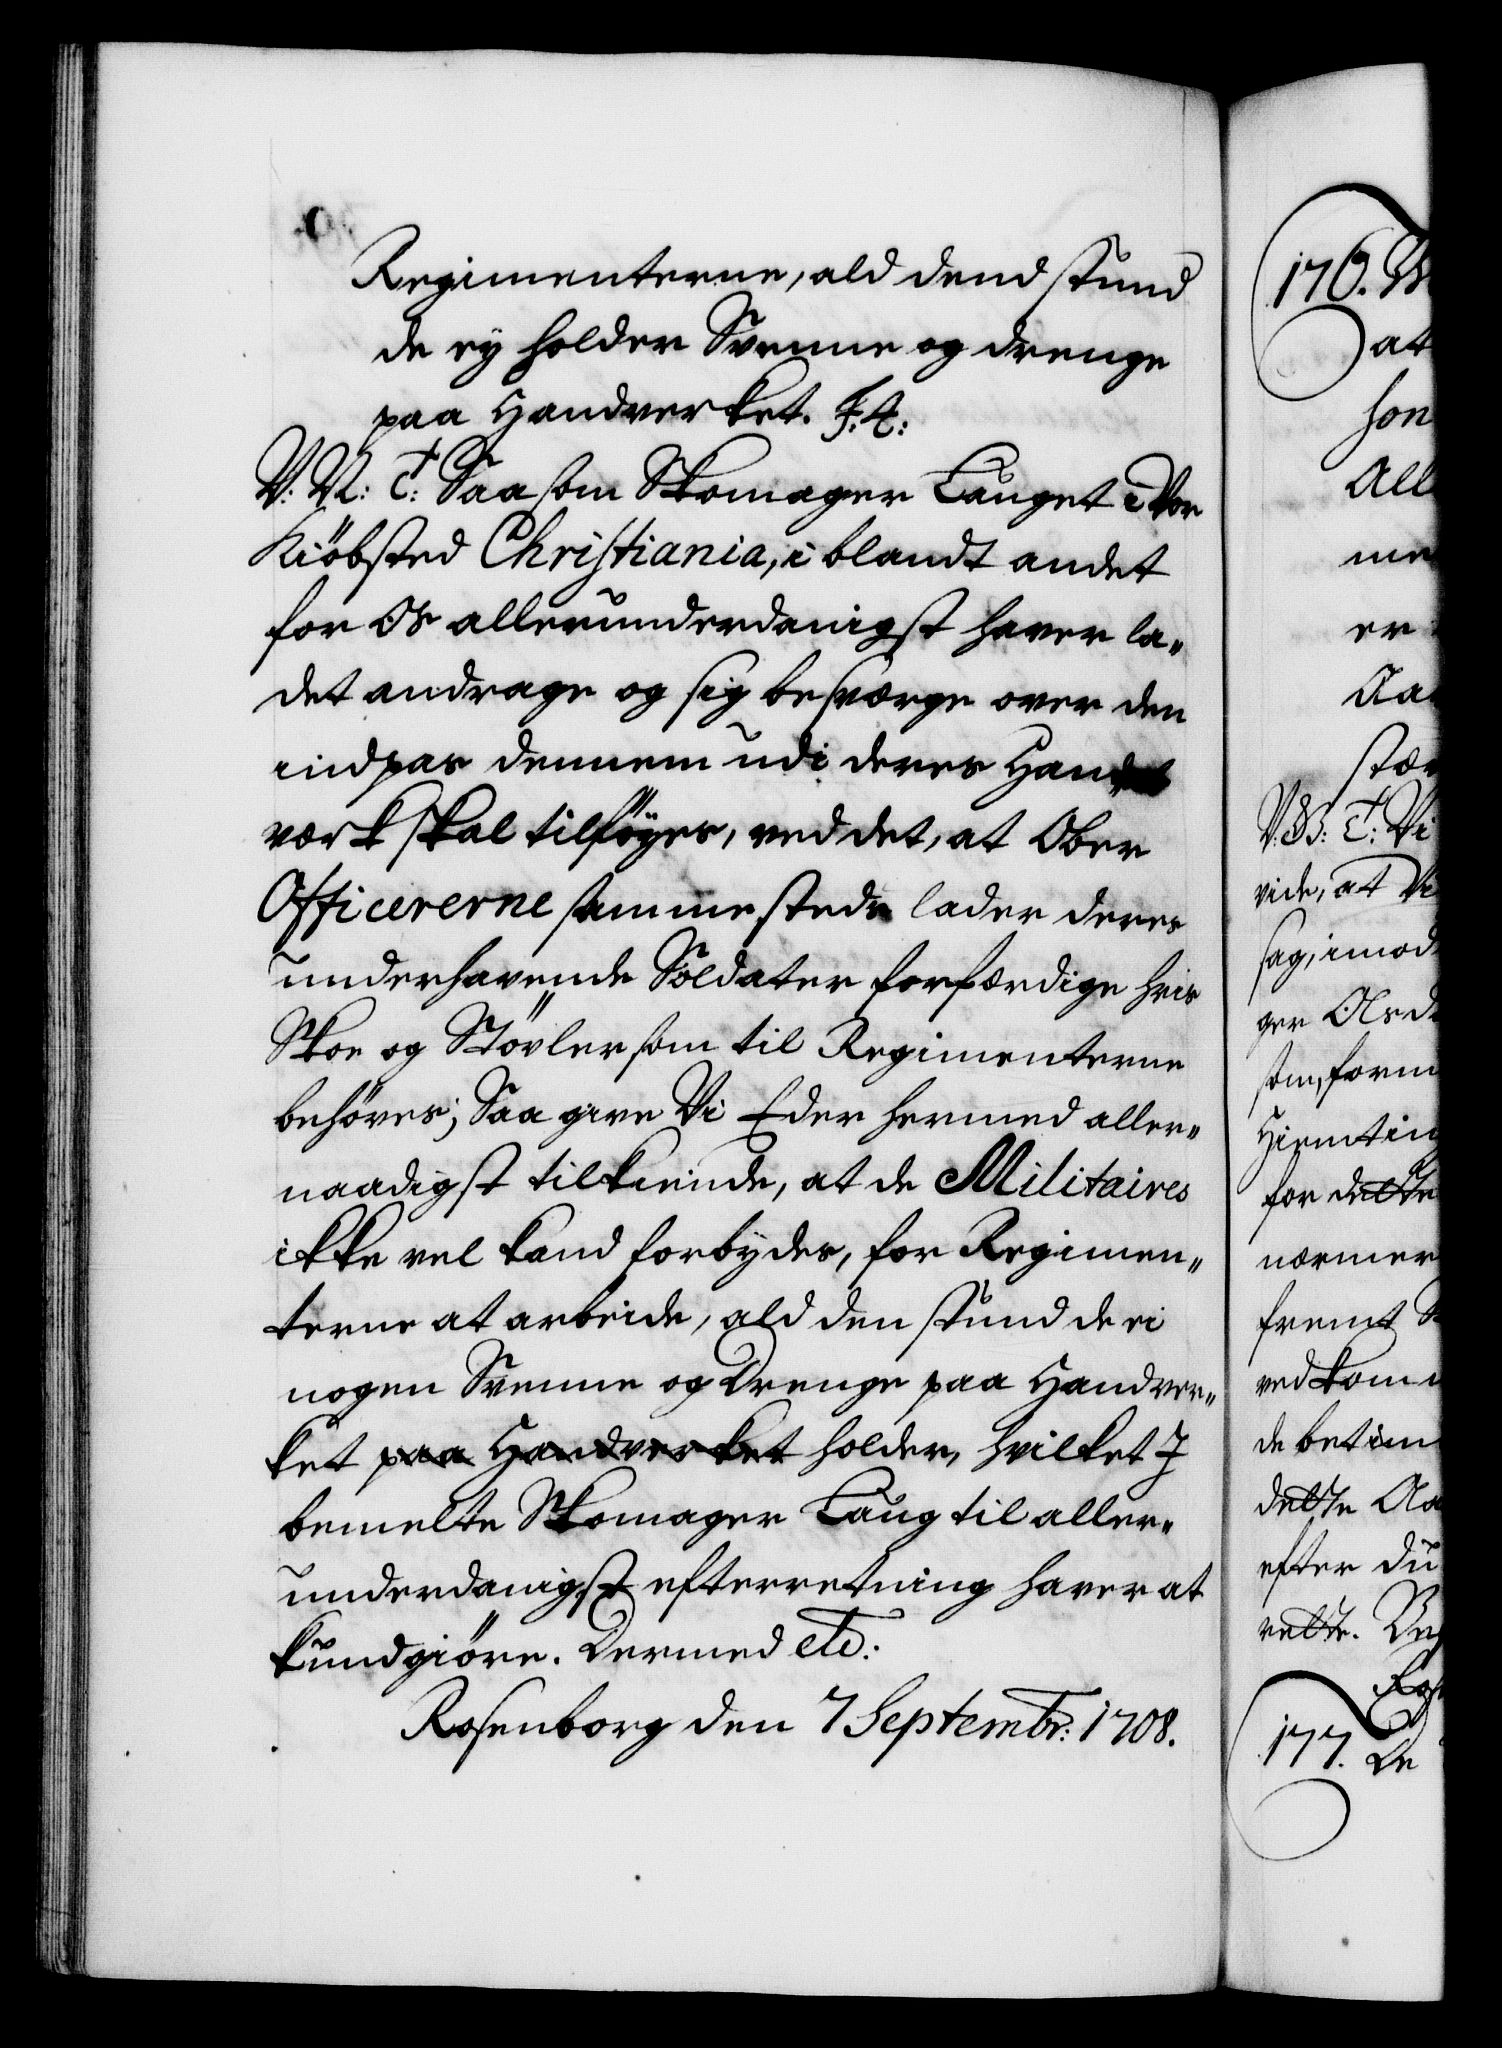 Regimenterne, ald dend stund
de ey holder Svenne og drenge
paa Handverket. F. 4:
V: N: C: Saa som Skomager Lauget i Vor
Kiöbsted Christiania, i blandt andet
for Os allerunderdanigst haver la„
det andrage og sig besværge over den
indpas dennem udi deres Hand
værk skal tilföyes, ved det, at Ober
Officererne sammesteds lader deres
underhavende Soldater forfærdige hvis
Skoe og Stövler som til Regimenterne
behöves; Saa give Vi Eder hermed aller„
naadigst tilkiende, at de Militaires
ikke vel kand forbydes, for Regimen„
terne at arbeide, ald den stund de ei
nogen Svenne og Drenge paa Handver„
ket paa Handverket holder, hvilket J
bemelte Skomager Laug til aller„
underdanigst efterretning haver at
kundgiöre. Dermed etc:
Rosenborg den 7 Septembr: 1708.
176.
at
hon
All
me
er
Aa
stær
V: B: C: Vi
vide, at Vi
sag, imod
ger Olsd
som, form
Hiemting
for dette
nærmer
fremt
vedkom
de betim
dette Aa
efter du
rette.
177. De